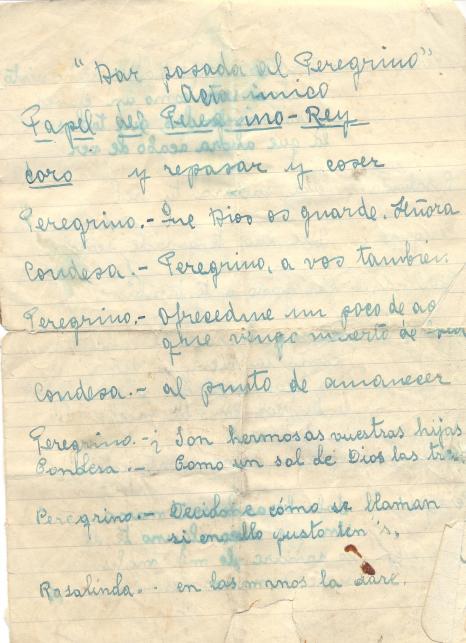 "Dar posada al Peregrino"
Acto único
Papel del Peregrino-Rey
coro y repasar y coser
Peregrino.- Que Dios os guarde, Señora
Condesa.- Peregrino, a vos también.
Peregrino.- Ofrecedme un poco de ag
que vengo muerto de
Condesa.- al punto de amanecer
Peregrino.-¡ Son hermosas vuestras hijas
Condesa.- Como un sol de Dios las tr
Peregrino.- Decidme cómo se llaman
si en ello gusto
Rosalinda.. en las manos la daré.